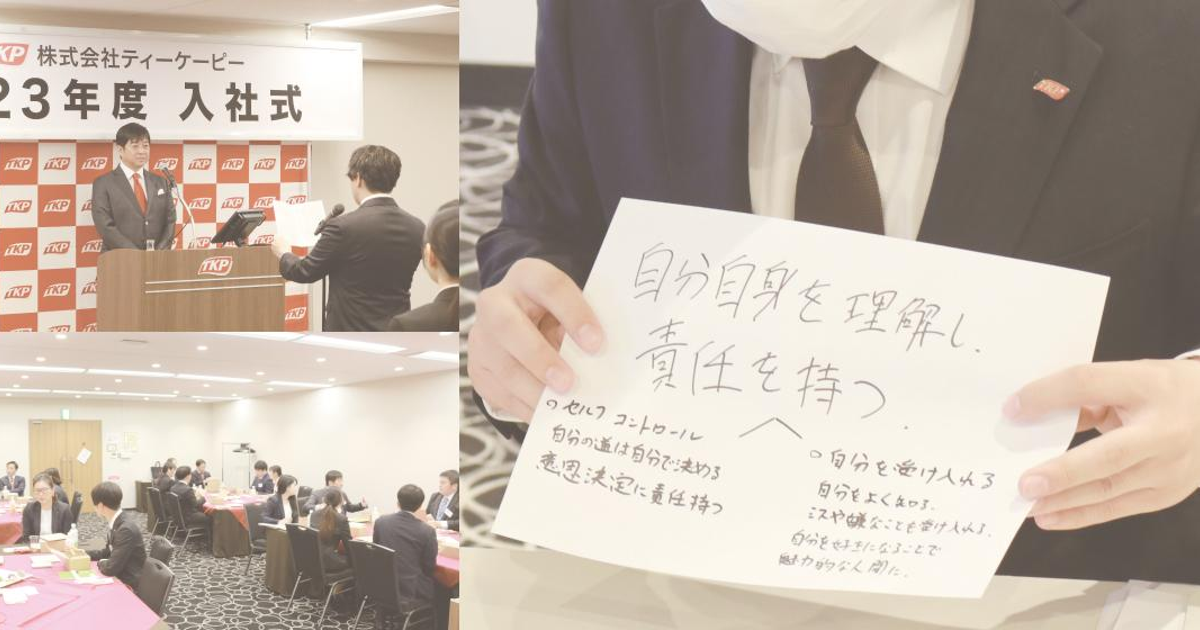 TKP 株式会社ティーケーピー
23年度 入社式
TKP
TKP
自分自身を理解し、
責任を持つ.
○セルフ コントロール
自分の道は自分で決める
意思決定に責任持つ
○自分を受け入れる
自分をよく知る.
ミスや嫌なことも受け入れる.
自分を好きになることで
魅力的な人間に.